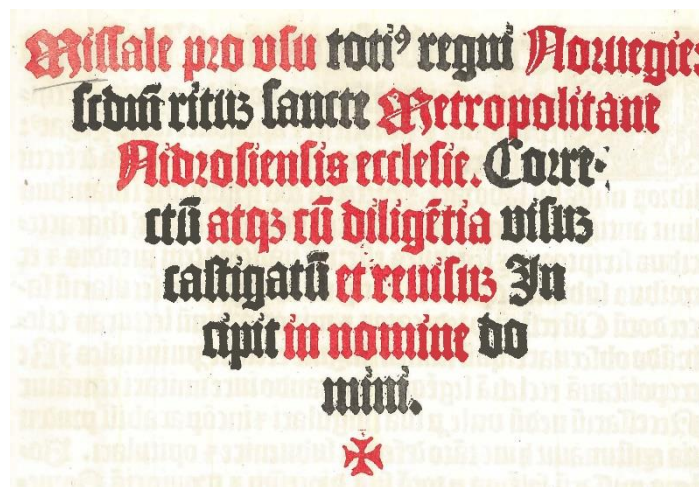 Missale pro vsu totiꝰ regni Noruegie
scdm̄ rituʒ sancte Metropolitane
Nidrosiensis ecclesie. Corre-
ctū atqʒ cū diligētia visuʒ
castigatū et reuisuʒ In
cipit in nomine do
mini.